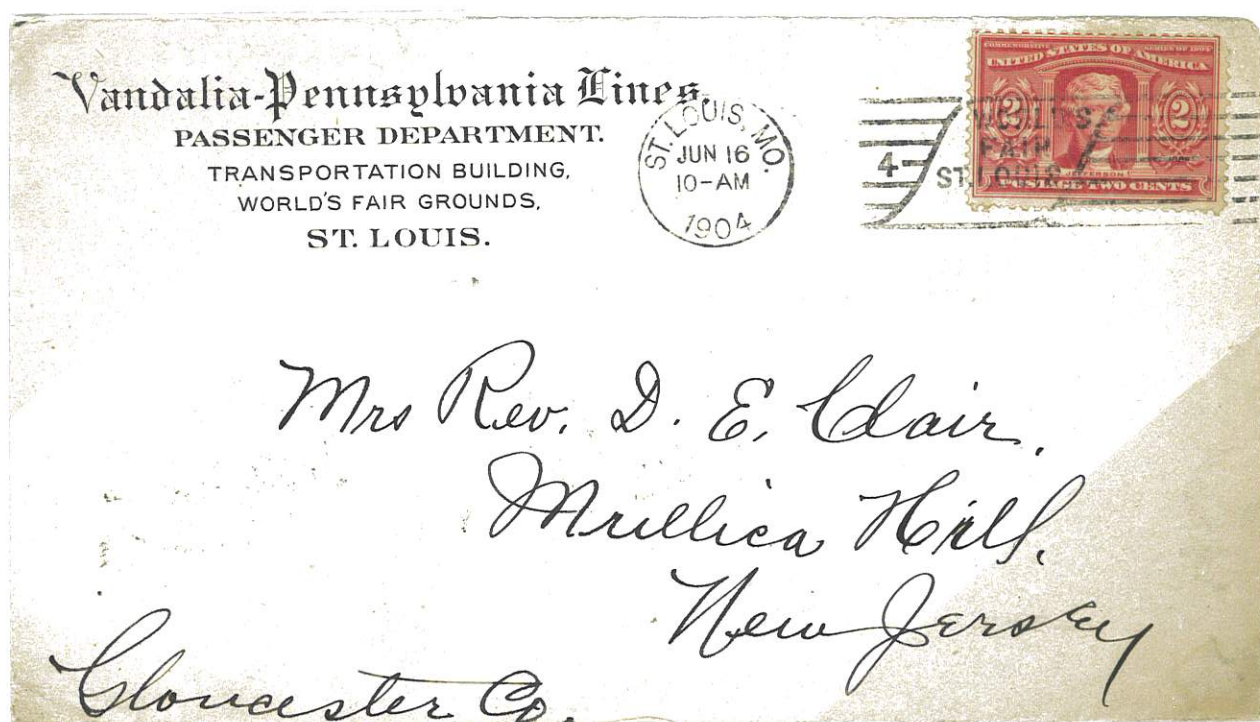 Vandalia-Pennsylvania Lines.
PASSENGER DEPARTMENT.
TRANSPORTATION BUILDING,
WORLD'S FAIR GROUNDS,
ST. LOUIS.
ST. LOUIS, MO.
JUN 16
10-AM
1904
4
FAIR
ST. LOUIS
COMMEMORATIVE SERIES OF 1904
UNITED STATES OF AMERICA
2 2
JEFFERSON
POSTAGE TWO CENTS
Mrs Rev. D. E. Clair.
Mullica Hill.
New Jersey
Gloucester Co.